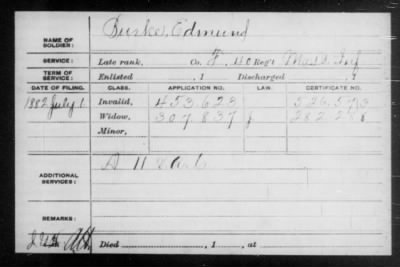 NAME OF SOLDIER: Burke, Edmund
SERVICE: Late rank, Co. F, Reg't Mass Inf
TERM OF SERVICE: Enlisted , 1 Discharged , 1
DATE OF FILING. CLASS. APPLICATION NO. LAW. CERTIFICATE NO.
1882 July 1 Invalid, 453.623
Widow, 307.837
Minor,
ADDITIONAL SERVICES:
REMARKS:
Died , 1 , at